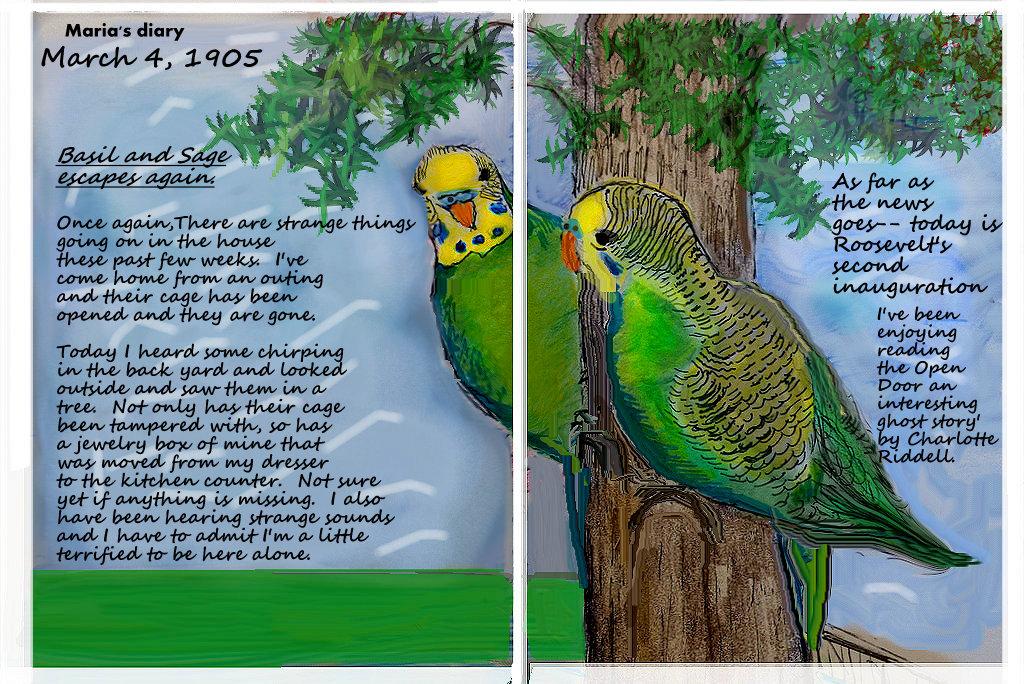 Maria's diary
March 4, 1905
Basil and Sage
escapes again.
Once again,There are strange things
going on in the house
these past few weeks. I've
come home from an outing
and their cage has been
opened and they are gone.
Today I heard some chirping
in the back yard and looked
outside and saw them in a
tree. Not only has their cage
been tampered with, so has
a jewelry box of mine that
was moved from my dresser
to the kitchen counter. Not sure
yet if anything is missing. I also
have been hearing strange sounds
and I have to admit I'm a little
terrified to be here alone.
As far as
the news
goes-- today is
Roosevelt's
second
inauguration
I've been
enjoying
reading
the Open
Door an
interesting
ghost story'
by Charlotte
Riddell.